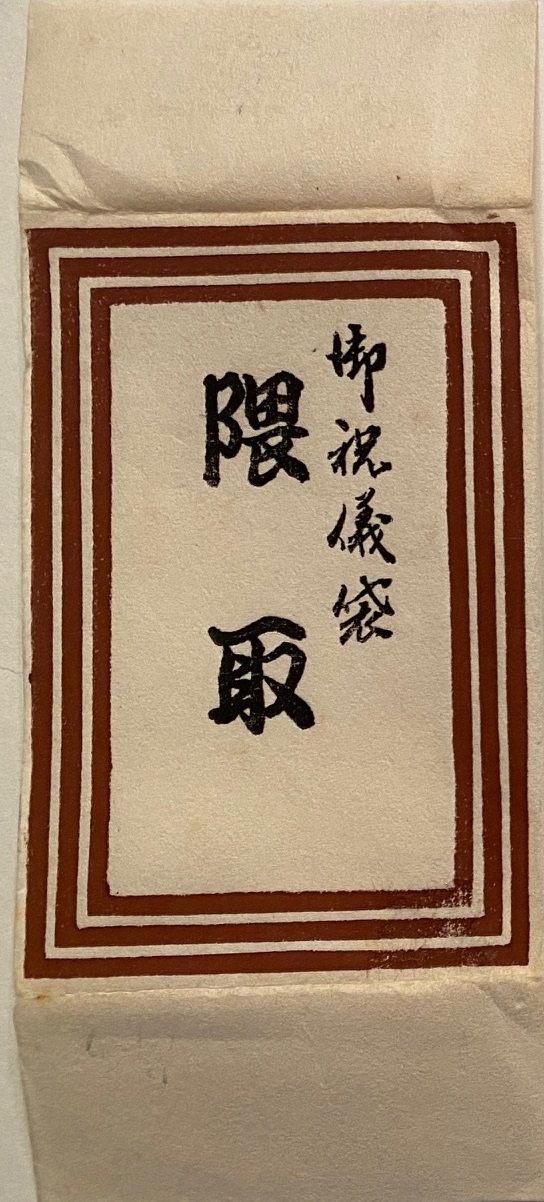 御祝儀袋
隈取